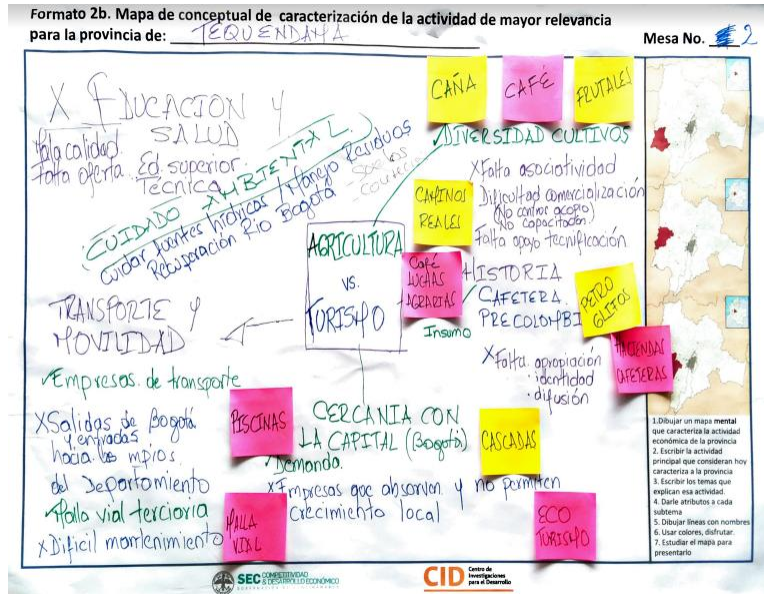 Formato 2b. Mapa de conceptual de caracterización de la actividad de mayor relevancia
para la provincia de: TEQUENDAMA
Mesa No. 2
X EDUCACION Y
SALUD
Mala calidad.
Falta oferta. Ed. superior.
Técnica
CUIDADO AMBIENTAL.
Cuidar fuentes hídricas / Manejo Residuos
Recuperación Rio Bogotá
CAÑA
CAFÉ
FRUTALES
✓DIVERSIDAD CULTIVOS
X Falta asociatividad
Dificultad comercialización
(No centros acopio)
No capacitación
Falta apoyo tecnificación
CAMINOS
REALES
AGRICULTURA
VS.
TURISMO
Café
LUCHAS
AGRARIAS
Insumo
HISTORIA
CAFETERA.
PRECOLOMBI
PETRO
GLIFOS
HACIENDAS
CAFETERAS
X Falta. apropiación
· identidad
· difusión
TRANSPORTE Y
MOVILIDAD
✓Empresas de transporte
X Salidas de Bogotá
y entradas
hacia los mpios.
del Departamiento
✓Malla vial terciaria
x Dificil mantenimiento
PISCINAS
MALLA
VIAL
CERCANIA CON
LA CAPITAL (Bogotá)
✓Demanda.
X Empresas que absorven y no permiten
crecimiento local
CASCADAS
ECO
TURISMO
1.Dibujar un mapa mental
que caracteriza la actividad
económica de la provincia
2. Escribir la actividad
principal que consideran hoy
caracteriza a la provincia
3. Escribir los temas que
explican esa actividad.
4. Darle atributos a cada
subtema
5. Dibujar líneas con nombres
6. Usar colores, disfrutar.
7. Estudiar el mapa para
presentarlo
SEC COMPETITIVIDAD
& DESARROLLO ECONÓMICO
CID Centro de
Investigaciones
para el Desarrollo